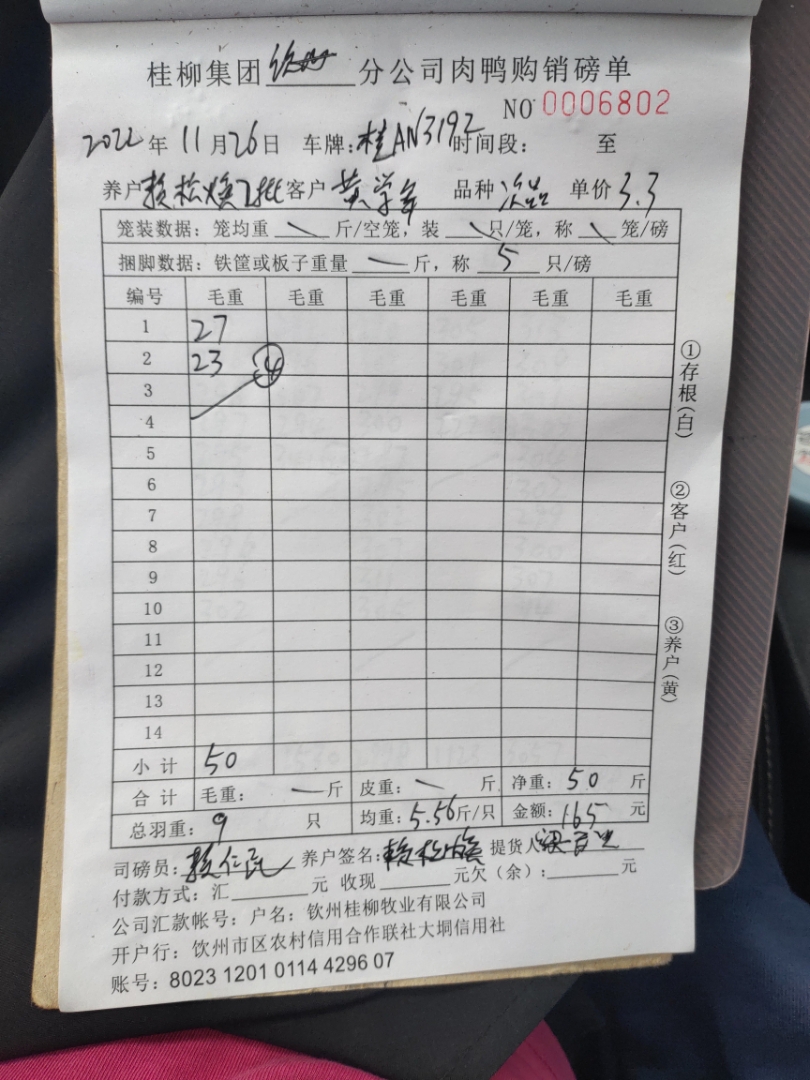 桂柳集团钦州分公司肉鸭购销磅单
NO 0006802
2022年11月26日 车牌:桂AN3192 时间段: 至
养户赖松焕 客户黄学年 品种次品 单价3.3
笼装数据:笼均重\斤/空笼,装\只/笼,称\笼/磅
捆脚数据:铁筐或板子重量\斤,称5只/磅
编号 毛重 毛重 毛重 毛重 毛重 毛重
1 27
2 23 ④
3
4
5
6
7
8
9
10
11
12
13
14
小计 50
合计 毛重:\斤 皮重:\斤 净重:50斤
总羽重:9只 均重:5.56斤/只 金额:165元
司磅员:赖仁民 养户签名:赖松焕 提货人
付款方式:汇 元 收现 元欠(余): 元
公司汇款帐号:户名:钦州桂柳牧业有限公司
开户行:饮州市区农村信用合作联社大垌信用社
账号:8023 1201 0114 4296 07
①存根(白)
②客户(红)
③养户(黄)